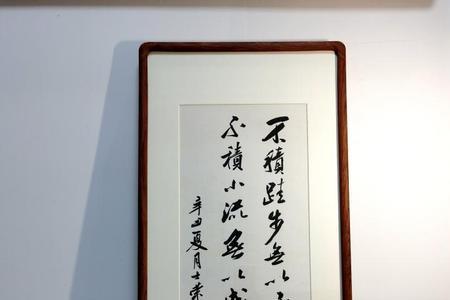 不積跬步無以
不積小流無以成
辛丑夏月士